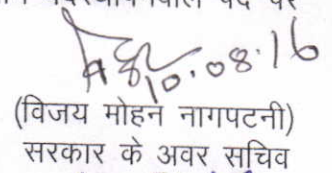 10.08.16
(विजय मोहन नागपटनी)
सरकार के अवर सचिव